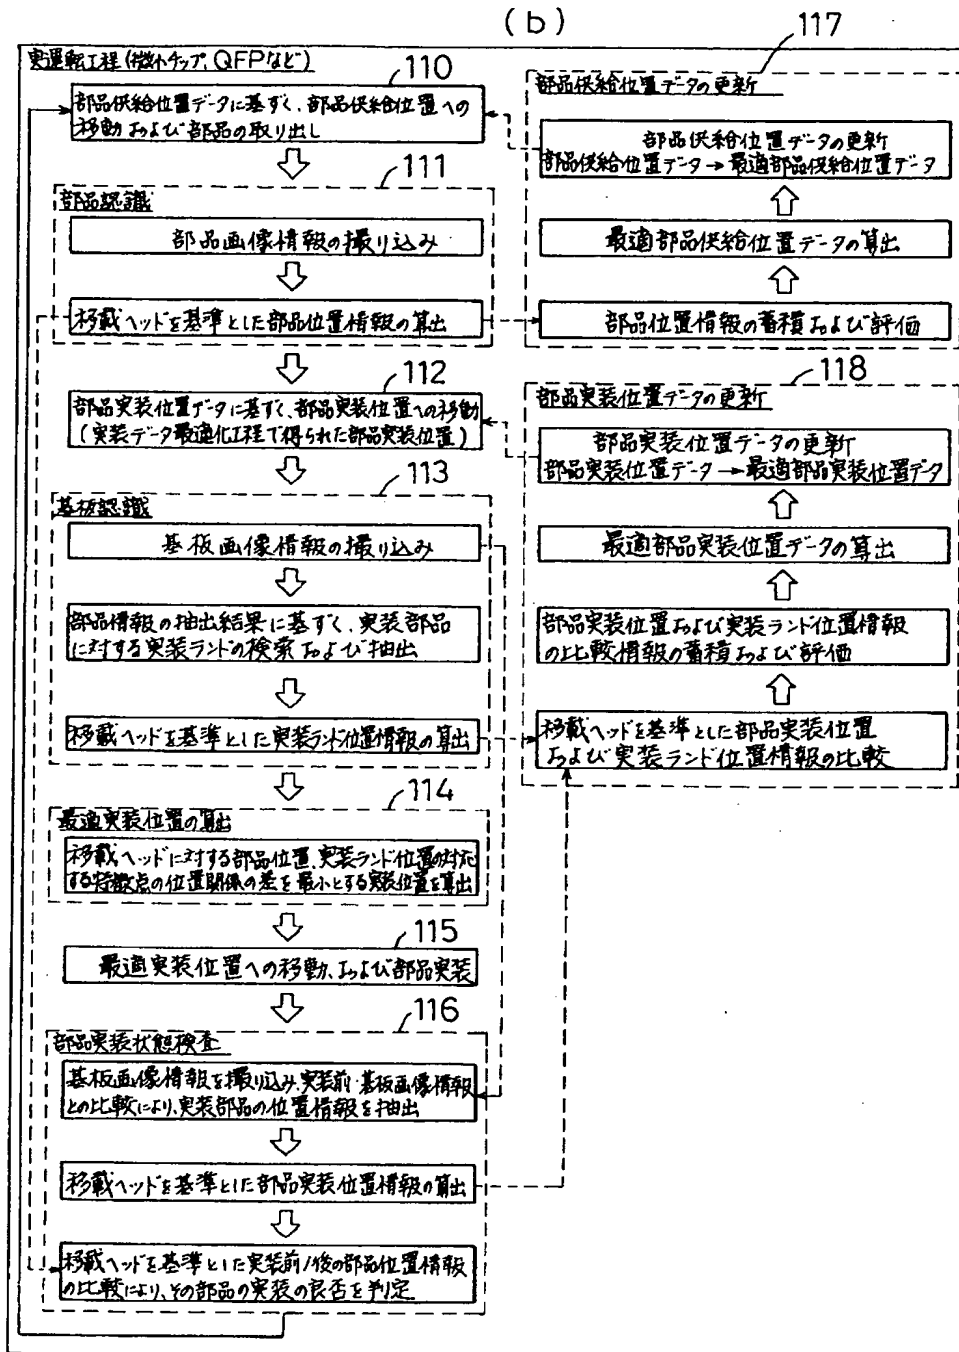 (b)
実運転工程(微小チップ、QFPなど)
110
部品供給位置データに基ずく、部品供給位置への
移動および部品の取り出し
111
部品認識
部品画像情報の撮り込み
移載ヘッドを基準とした部品位置情報の算出
112
部品実装位置データに基ずく、部品実装位置への移動
(実装データ最適化工程で得られた部品実装位置)
113
基板認識
基板画像情報の撮り込み
部品情報の抽出結果に基ずく、実装部品
に対する実装ランドの検索および抽出
移載ヘッドを基準とした実装ランド位置情報の算出
114
最適実装位置の算出
移載ヘッドに対する部品位置、実装ランド位置の対応
する特徴点の位置関係の差を最小とする実装位置を算出
115
最適実装位置への移動、および部品実装
116
部品実装状態検査
基板画像情報を撮り込み、実装前・基板画像情報
との比較により、実装部品の位置情報を抽出
移載ヘッドを基準とした部品実装位置情報の算出
移載ヘッドを基準とした実装前/後の部品位置情報
の比較により、その部品の実装の良否を判定
117
部品供給位置データの更新
部品供給位置データの更新
部品供給位置データ→最適部品供給位置データ
最適部品供給位置データの算出
部品位置情報の蓄積および評価
118
部品実装位置データの更新
部品実装位置データの更新
部品実装位置データ→最適部品実装位置データ
最適部品実装位置データの算出
部品実装位置および実装ランド位置情報
の比較情報の蓄積および評価
移載ヘッドを基準とした部品実装位置
および実装ランド位置情報の比較